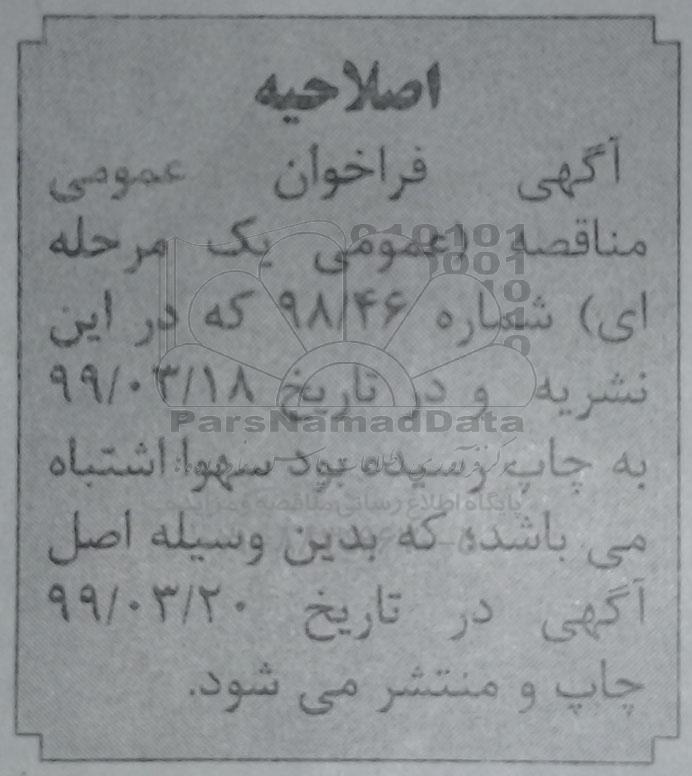 اصلاحیه
آگهی فراخوان عمومی
مناقصه (عمومی یک مرحله
ای) شماره ۹۸/۴۶ که در این
نشریه و در تاریخ ۹۹/۰۳/۱۸
ParsNamadData
به چاپ رسیده بود سهوا اشتباه
پایگاه اطلاع رسانی مناقصه و مزایده
می باشده که بدین وسیله اصل
آگهی در تاریخ ۹۹/۰۳/۲۰
چاپ و منتشر می شود.